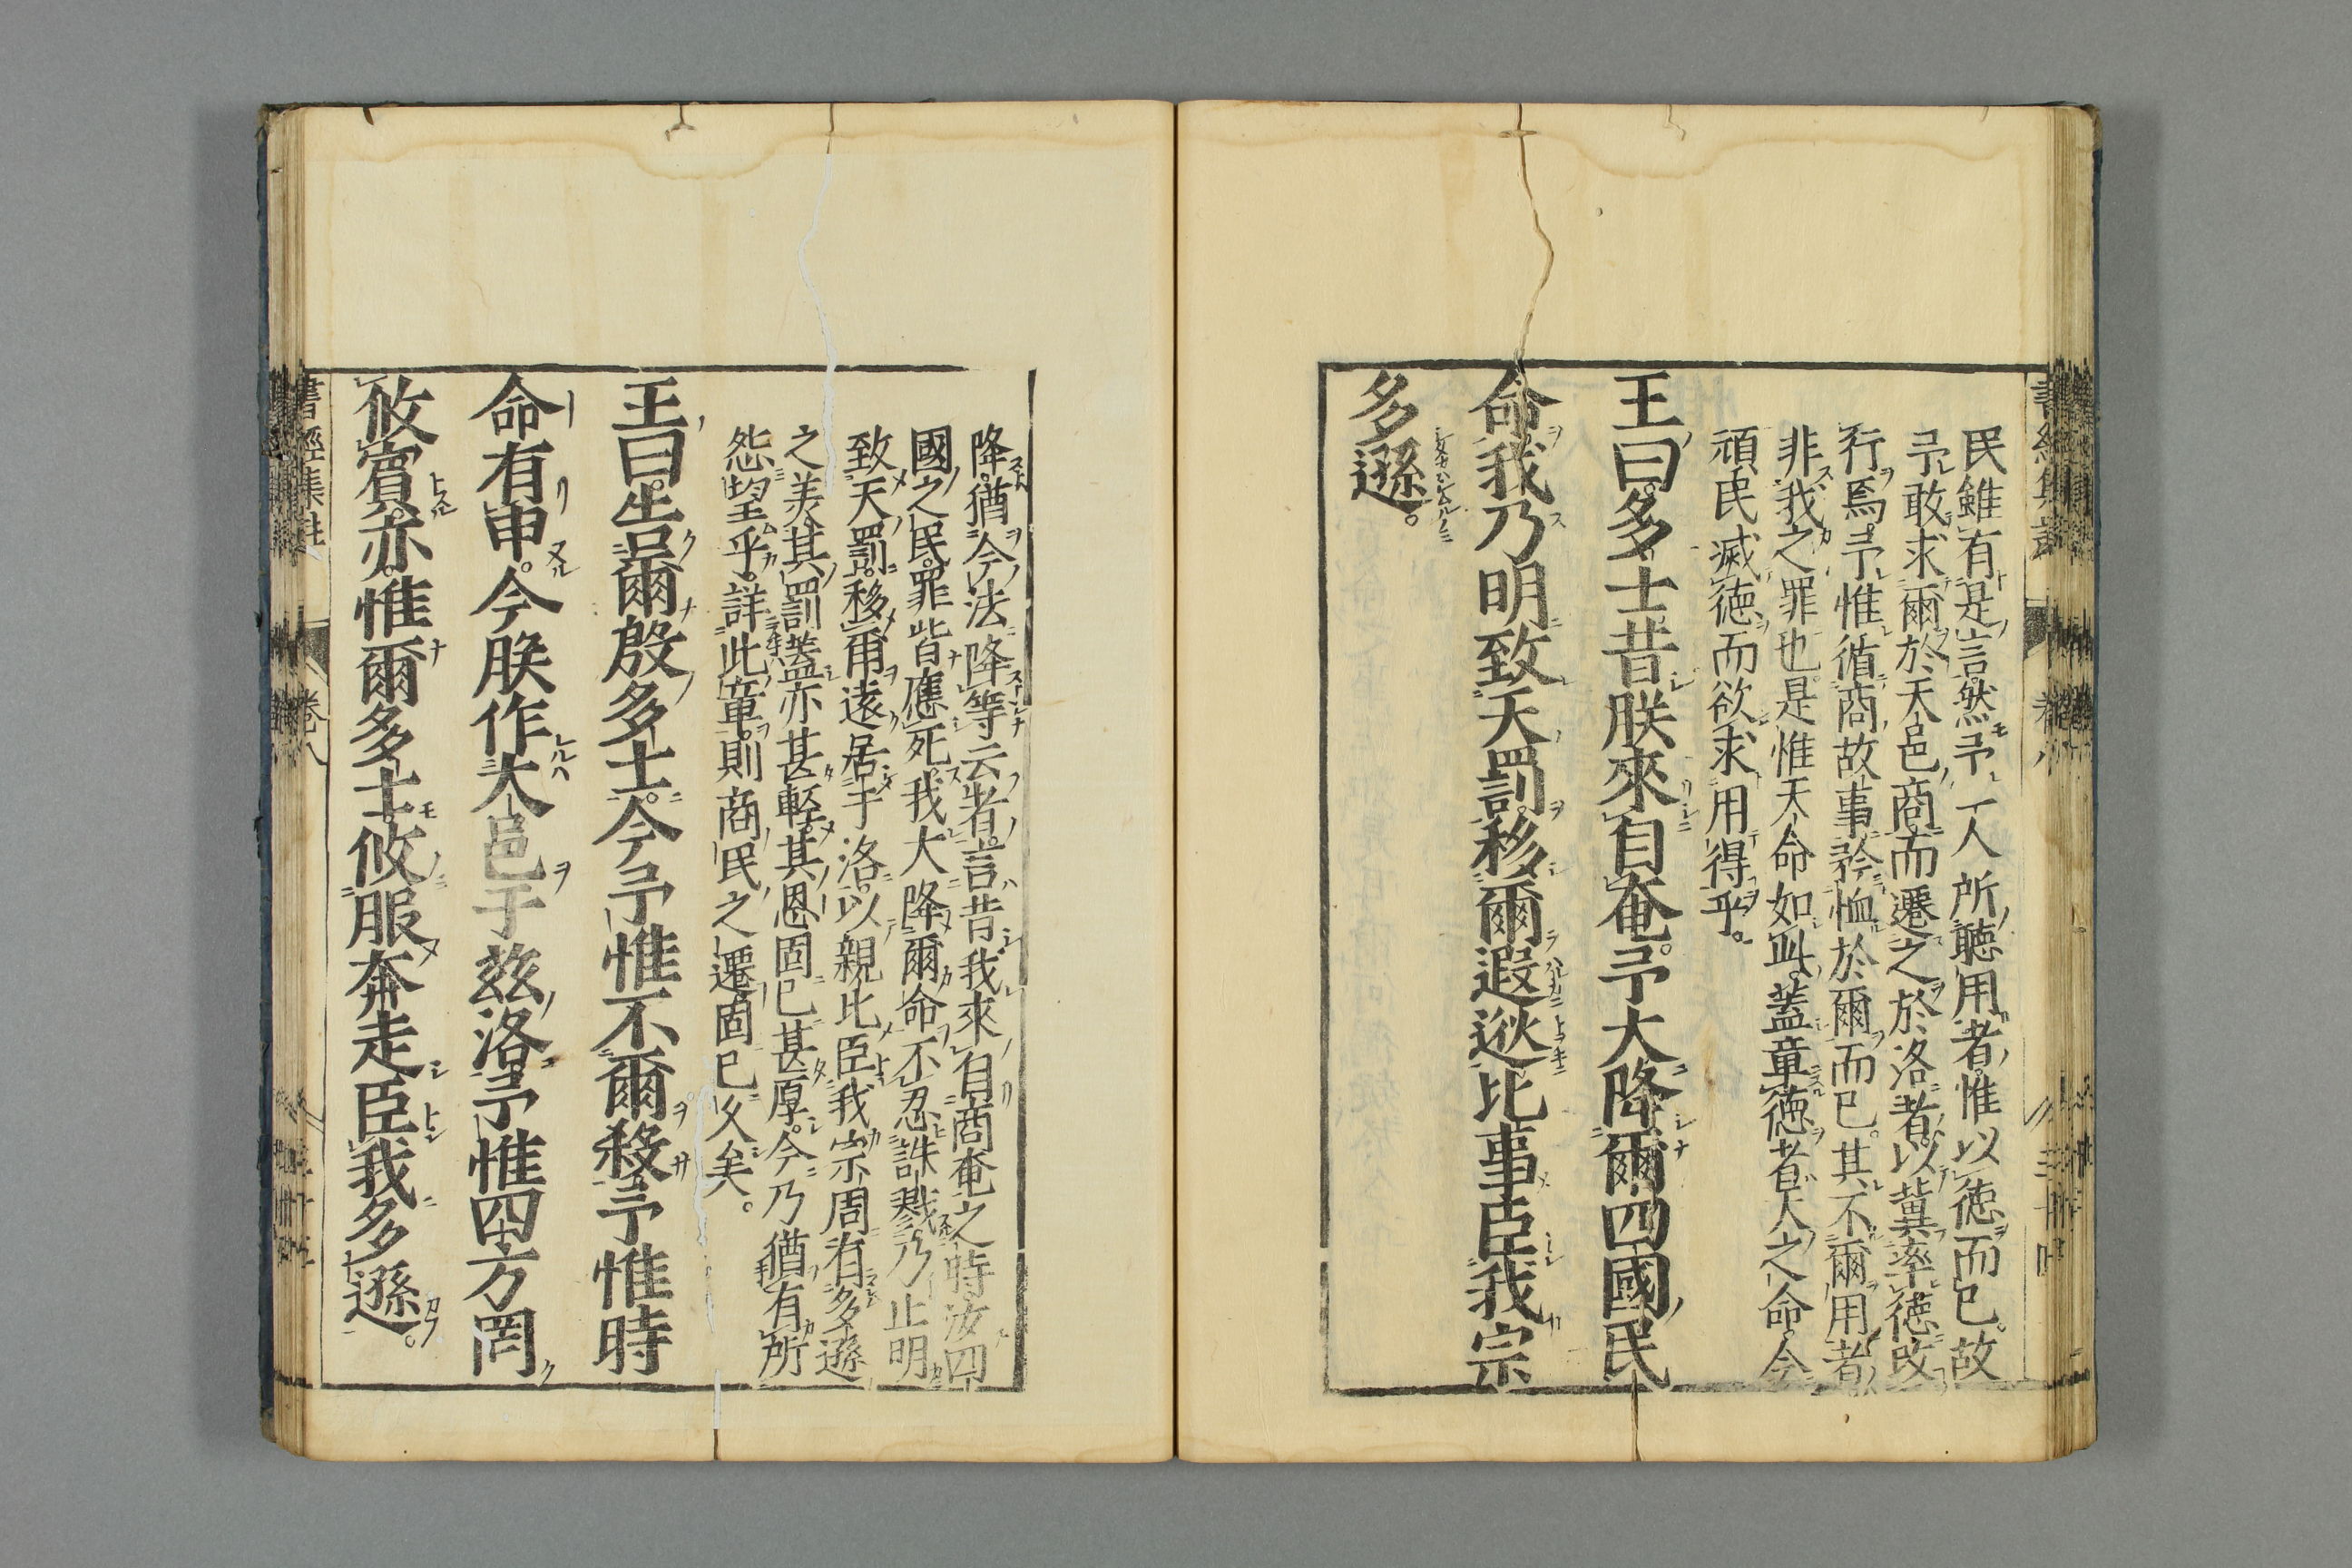 民雖有是言然予一人所聽用者惟以德而已。故
予敢求爾於天邑商而遷之於洛者以冀率德改
行焉。予惟循商故事矜恤於爾而已。其不爾用者
非我之罪也是惟天命如此。蓋章德者天之命今
頑民滅德而欲求用得乎。
王曰多士昔朕來自奄。予大降爾四國民
命我乃明致天罰移爾遐逖比事臣我宗
多遜。
降。猶今法降等云者。言昔我來自商奄之時汝四
國之民罪皆應死我大降爾命不忍誅戮。乃止明
致天罰。移爾遠居于洛。以親比臣我宗周有多遜
之美其罰蓋亦甚輕。其恩固已甚厚。今乃猶有所
怨望乎。詳此章則商民之遷固已久矣。
王曰告爾殷多士今予惟不爾殺予惟時
命有申。今朕作大邑于茲洛予惟四方罔
攸賓。亦惟爾多士攸服奔走臣我多遜。
書經集註 卷八